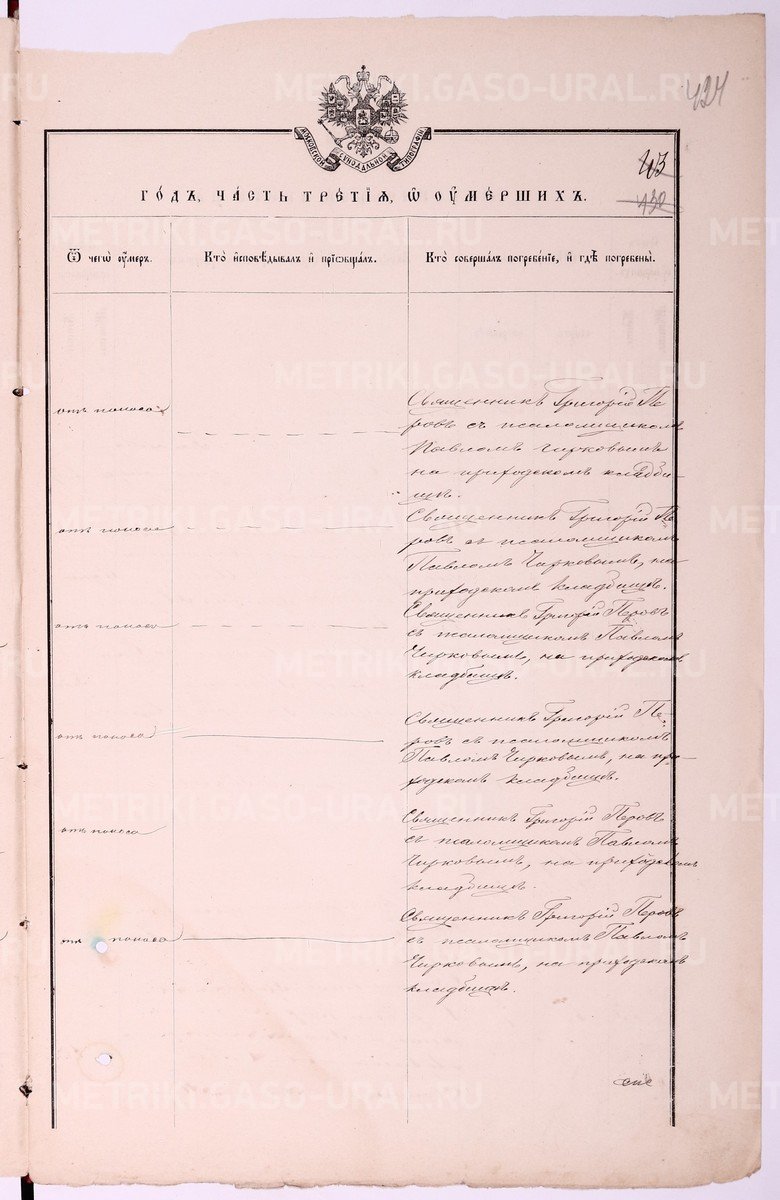 424
МОСКОВСКОЙ СѴНОДАЛЬНОЙ ТИПОГРАФІИ
430
ГО́ДЪ, ЧА́СТЬ ТРЕ́ТІѦ, Ѽ ОУМЕ́РШИХЪ.
Ѿ чегѡ̀ оу҆́меръ.
Кто̀ и҆сповѣ́дывалъ и҆ прїѡбща́лъ.
Кто̀ соверша́лъ погребе́нїе, и҆ гдѣ̀ погребены̀.
отъ поноса
Священникъ Григорій Пе
ровъ съ псаломщикомъ
Павломъ Чирковымъ
на приходскомъ кладби
щѣ.
отъ поноса
Священникъ Григорій Пе
ровъ съ псаломщикомъ
Павломъ Чирковымъ, на
приходскомъ кладбищѣ.
отъ поноса
Священникъ Григорій Перовъ
съ псаломщикомъ Павломъ
Чирковымъ, на приходскомъ
кладбищѣ.
отъ поноса
Священникъ Григорій Пе-
ровъ съ псаломщикомъ
Павломъ Чирковымъ, на при-
ходскомъ кладбищѣ.
отъ поноса
Священникъ Григорій Перовъ
съ псаломщикомъ Павломъ
Чирковымъ, на приходскомъ
кладбищѣ.
отъ поноса
Священникъ Григорій Перовъ
съ псаломщикомъ Павломъ
Чирковымъ, на приходскомъ
кладбищѣ.
METRIKI.GASO-URAL.RU